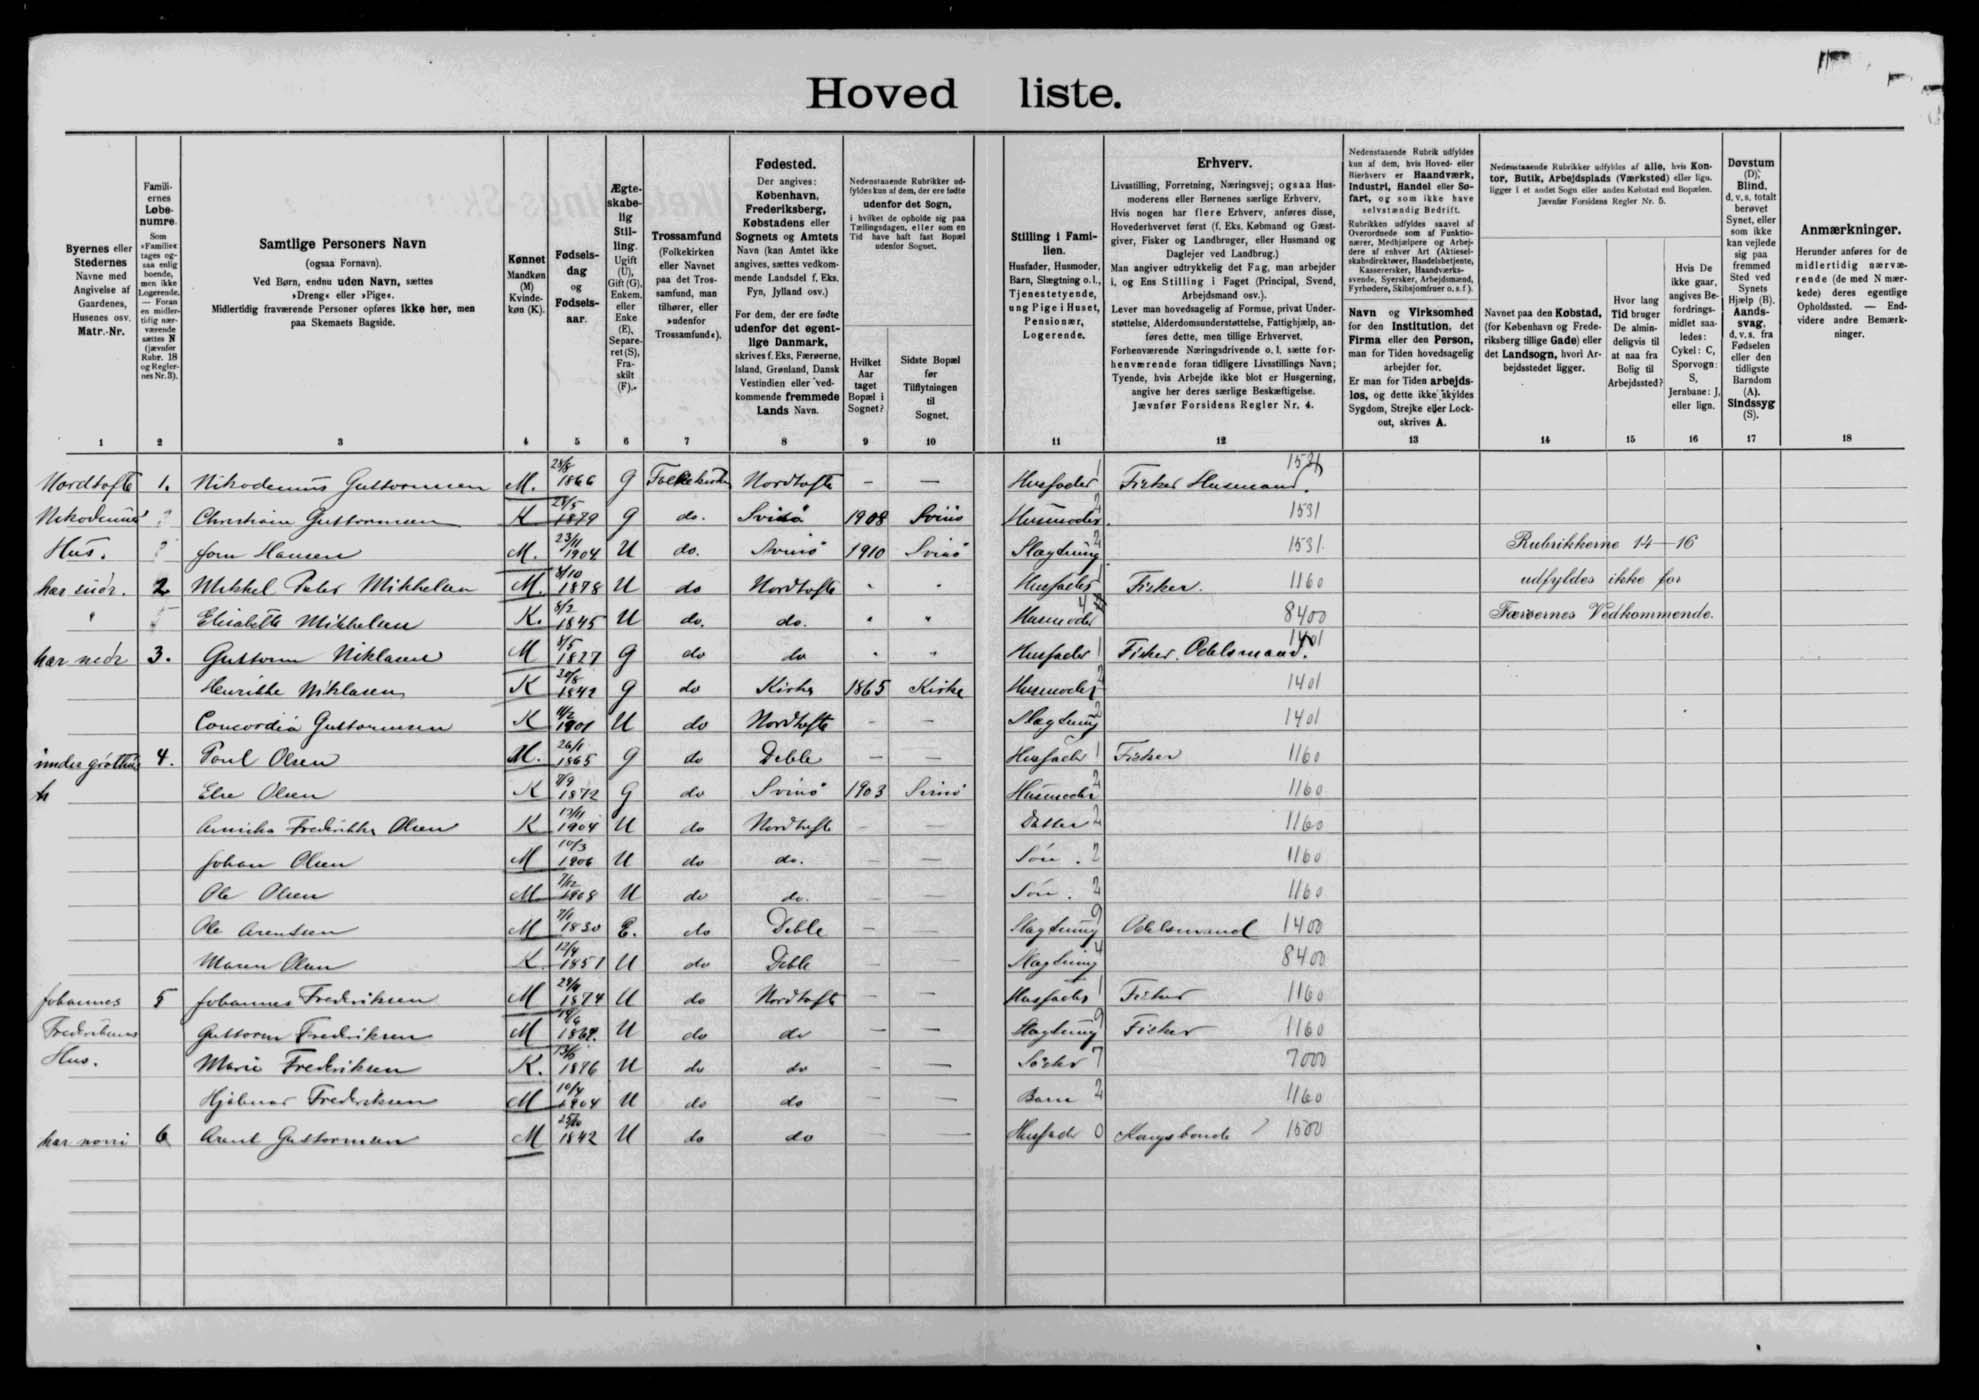 Hovedliste.
Byernes eller
Stedernes
Navne med
Angivelse af
Gaardenes,
Husenes osv.
Matr.-Nr.
Famili-
ernes
Løbe-
numre.
Som
»Familie«
tages og-
saa enlig
boende,
men ikke
Logerende.
— Foran
en midler-
tidig nær-
værende
sættes N
(jævnfør
Rubr. 18
og Regler-
nes Nr. 3).
Samtlige Personers Navn
(ogsaa Fornavn).
Ved Børn, endnu uden Navn, sættes
»Dreng« eller »Pige«.
Midlertidig fraværende Personer opføres ikke her, men
paa Skemaets Bagside.
Kønnet
Mandkøn
(M)
Kvinde-
køn (K).
Fødsels-
dag
og
Fødsels-
aar.
Ægte-
skabe-
lig
Stil-
ling.
Ugift
(U),
Gift (G),
Enkem.
eller
Enke
(E),
Separe-
ret (S),
Fra-
skilt
(F).
Trossamfund
(Folkekirken
eller Navnet
paa det Tros-
samfund, man
tilhører, eller
»udenfor
Trossamfund«).
Fødested.
Der angives:
København,
Frederiksberg,
Købstadens eller
Sognets og Amtets
Navn (kan Amtet ikke
angives, sættes vedkom-
mende Landsdel f. Eks.
Fyn, Jylland osv.)
For dem, der ere fødte
udenfor det egent-
lige Danmark,
skrives f. Eks. Færøerne,
Island, Grønland, Dansk
Vestindien eller ved-
kommende fremmede
Lands Navn.
Nedenstaaende Rubrikker ud-
fyldes kun af dem, der ere fødte
udenfor det Sogn,
i hvilket de opholde sig paa
Tællingsdagen, eller som en
Tid have haft fast Bopæl
udenfor Sognet.
Hvilket
Aar
taget
Bopæl i
Sognet?
Sidste Bopæl
før
Tilflytningen
til
Sognet.
Stilling i Fami-
lien.
Husfader, Husmoder,
Barn, Slægtning o.l.,
Tjenestetyende,
ung Pige i Huset,
Pensionær,
Logerende.
Erhverv.
Livsstilling, Forretning, Næringsvej; ogsaa Hus-
moderens eller Børnenes særlige Erhverv.
Hvis nogen har flere Erhverv, anføres disse,
Hovederhvervet først (f. Eks. Købmand og Gæst-
giver, Fisker og Landbruger, eller Husmand og
Daglejer ved Landbrug.)
Man angiver udtrykkelig det Fag, man arbejder
i, og Ens Stilling i Faget (Principal, Svend,
Arbejdsmand osv.).
Lever man hovedsagelig af Formue, privat Under-
støttelse, Alderdomsunderstøttelse, Fattighjælp, an-
føres dette, men tillige Erhvervet.
Forhenværende Næringsdrivende o. l. sætte for-
henværende foran tidligere Livsstillings Navn;
Tyende, hvis Arbejde ikke blot er Husgerning,
angive her deres særlige Beskæftigelse.
Jævnfør Forsidens Regler Nr. 4.
Nedenstaaende Rubrik udfyldes
kun af dem, hvis Hoved- eller
Bierhverv er Haandværk,
Industri, Handel eller Sø-
fart, og som ikke have
selvstændig Bedrift.
Rubrikken udfyldes saavel af
Overordnede som af Funktio-
nærer, Medhjælpere og Arbej-
dere af enhver Art (Aktiesel-
skabsdirektører, Handelsbetjente,
Kasserersker, Haandværks-
svende, Syersker, Arbejdsmænd,
Fyrbødere, Skibsjomfruer o. s. f.).
Navn og Virksomhed
for den Institution, det
Firma eller den Person,
man for Tiden hovedsagelig
arbejder for.
Er man for Tiden arbejds-
løs, og dette ikke skyldes
Sygdom, Strejke eller Lock-
out, skrives A.
Nedenstaaende Rubrikker udfyldes af alle, hvis Kon-
tor, Butik, Arbejdsplads (Værksted) eller lign.
ligger i et andet Sogn eller anden Købstad end Bopælen.
Jævnfør Forsidens Regler Nr. 5.
Navnet paa den Købstad,
(for København og Frede-
riksberg tillige Gade) eller
det Landsogn, hvori Ar-
bejdsstedet ligger.
Hvor lang
Tid bruger
De almin-
deligvis til
at naa fra
Bolig til
Arbejdssted?
Hvis De
ikke gaar,
angives Be-
fordrings-
midlet saa-
ledes:
Cykel: C,
Sporvogn:
S,
Jernbane: J,
eller lign.
Døvstum
(D);
Blind,
d. v. s. totalt
berøvet
Synet, eller
som ikke
kan vejlede
sig paa
fremmed
Sted ved
Synets
Hjælp (B).
Aands-
svag,
d. v. s. fra
Fødselen
eller den
tidligste
Barndom
(A).
Sindssyg
(S).
Anmærkninger.
Herunder anføres for de
midlertidig nærvæ-
rende (de med N mær-
kede) deres egentlige
Opholdssted. — End-
videre andre Bemærk-
ninger.
1 2 3 4 5 6 7 8 9 10 11 12 13 14 15 16 17 18
Nordtofte 1. Nikodemus Guttormsen M. 1866 G Folkekirken Nordtofte — — Husfader 1 Fisker Husmand. 1531
Nikodemus Christiane Guttormsen K 1879 G do. Svinø 1908 Svinø Husmoder 2 1531
Hus. Jorn Hansen M. 23/11 1904 U do. Svinø 1910 Svinø Slægtning 2 1531 Rubrikkerne 14—16
har suðr. 2 Mikkel Peter Mikkelsen M. 8/10 1878 U do Nordtofte " " Husfader 1 Fisker. 1160 udfyldes ikke for
" Elisabeth Mikkelsen K. 8/2 1845 U do. do. " " Husmoder 4 8400 Færøernes Vedkommende.
har neðr 3. Guttorm Niklasen M 1827 G do do " " Husfader 1 Fisker. Odelsmand. 1401
Henrikke Niklasen K 1842 G do Kirke 1865 Kirke Husmoder 2 1401
Concordia Guttormsen K 1901 U do Nordtofte — — Slægtning 2 1401
4. Poul Olsen M. 26/1 1865 G do Deble — — Husfader 1 Fisker 1160
Else Olsen K 1872 G do Svinø 1903 Svinø Husmoder 2 1160
Annika Fredrikke Olsen K 17/11 1904 U do Nordtofte — — Datter 2 1160
Johan Olsen M 10/3 1906 U do do. — — Søn. 2 1160
Ole Olsen M 7/12 1908 U do do. — — Søn. 2 1160
Ole Arentsen M 1830 E. do Deble — — Slægtning 9 Odelsmand 1400
Maren Olsen K 12/4 1851 U do Deble — — Slægtning 4 8400
Johannes 5 Johannes Frederiksen M 1874 U do Nordtofte — — Husfader 1 Fisker 1160
Frederiksens Guttorm Frederiksen M U do do — — Slægtning 9 Fisker 1160
Hus. Marie Frederiksen K. 1876 U do do — — Søster 7 7000
Hjalmar Frederiksen M 10/4 1904 U do do — — Barn 2 1160
har norri 6 Arent Guttormsen M 1842 U do do — — Husfader 0 Kongsbonde 1500